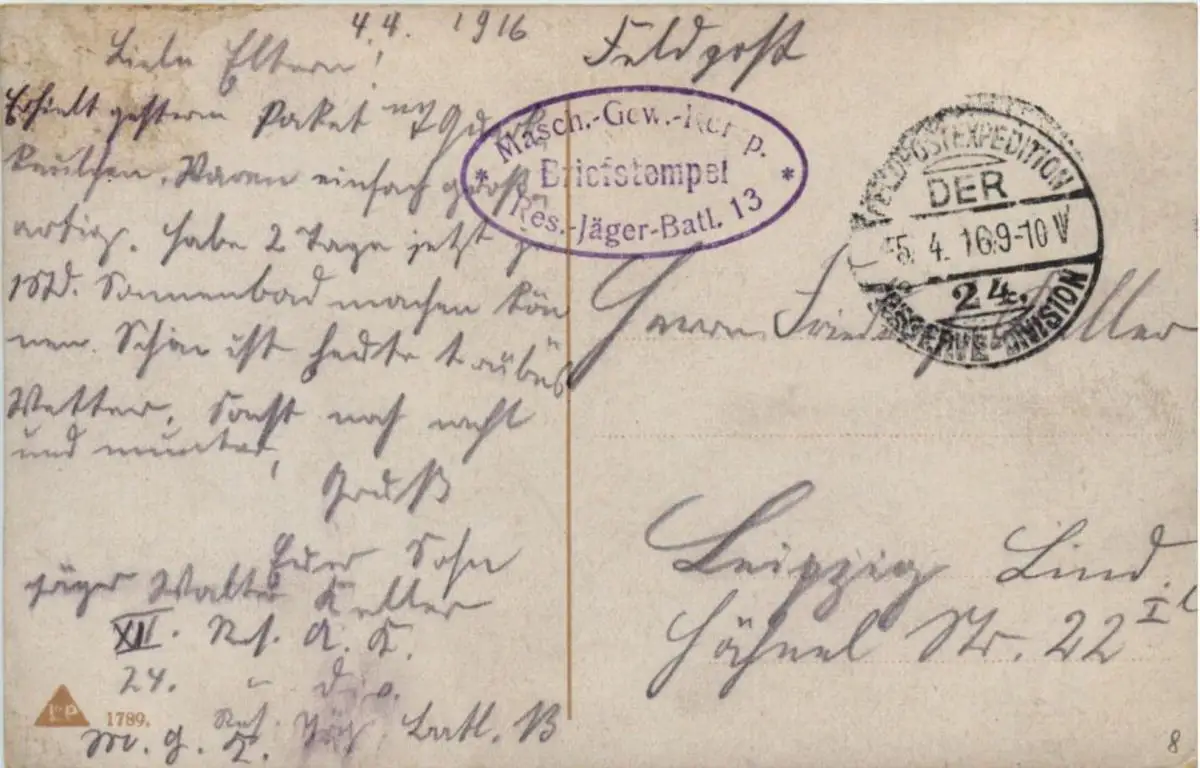 4.4. 1916
Liebe Eltern!
Erhielt gestern Paket
Waren einfach groß-
artig. Habe 2 Tage jetzt je
1 Std. Sonnenbad machen kön
nen. ist heute trübes
Wetter, sonst noch recht
und munter,
Gruß
Euer Sohn
Jäger Walter Keller
XII. Res. A. K.
24. " Div.
Res. Jäg. Batl. 13
M. G. K.
1789.
Feldpost
Masch.-Gew.-Komp.
* Briefstempel *
Res.-Jäger-Batl. 13
FELDPOSTEXPEDITION
DER
5. 4. 16 9-10 V
24.
RESERVE-DIVISION
Herrn Keller
Leipzig Lind.
Hähnel Str. 22 I l
8